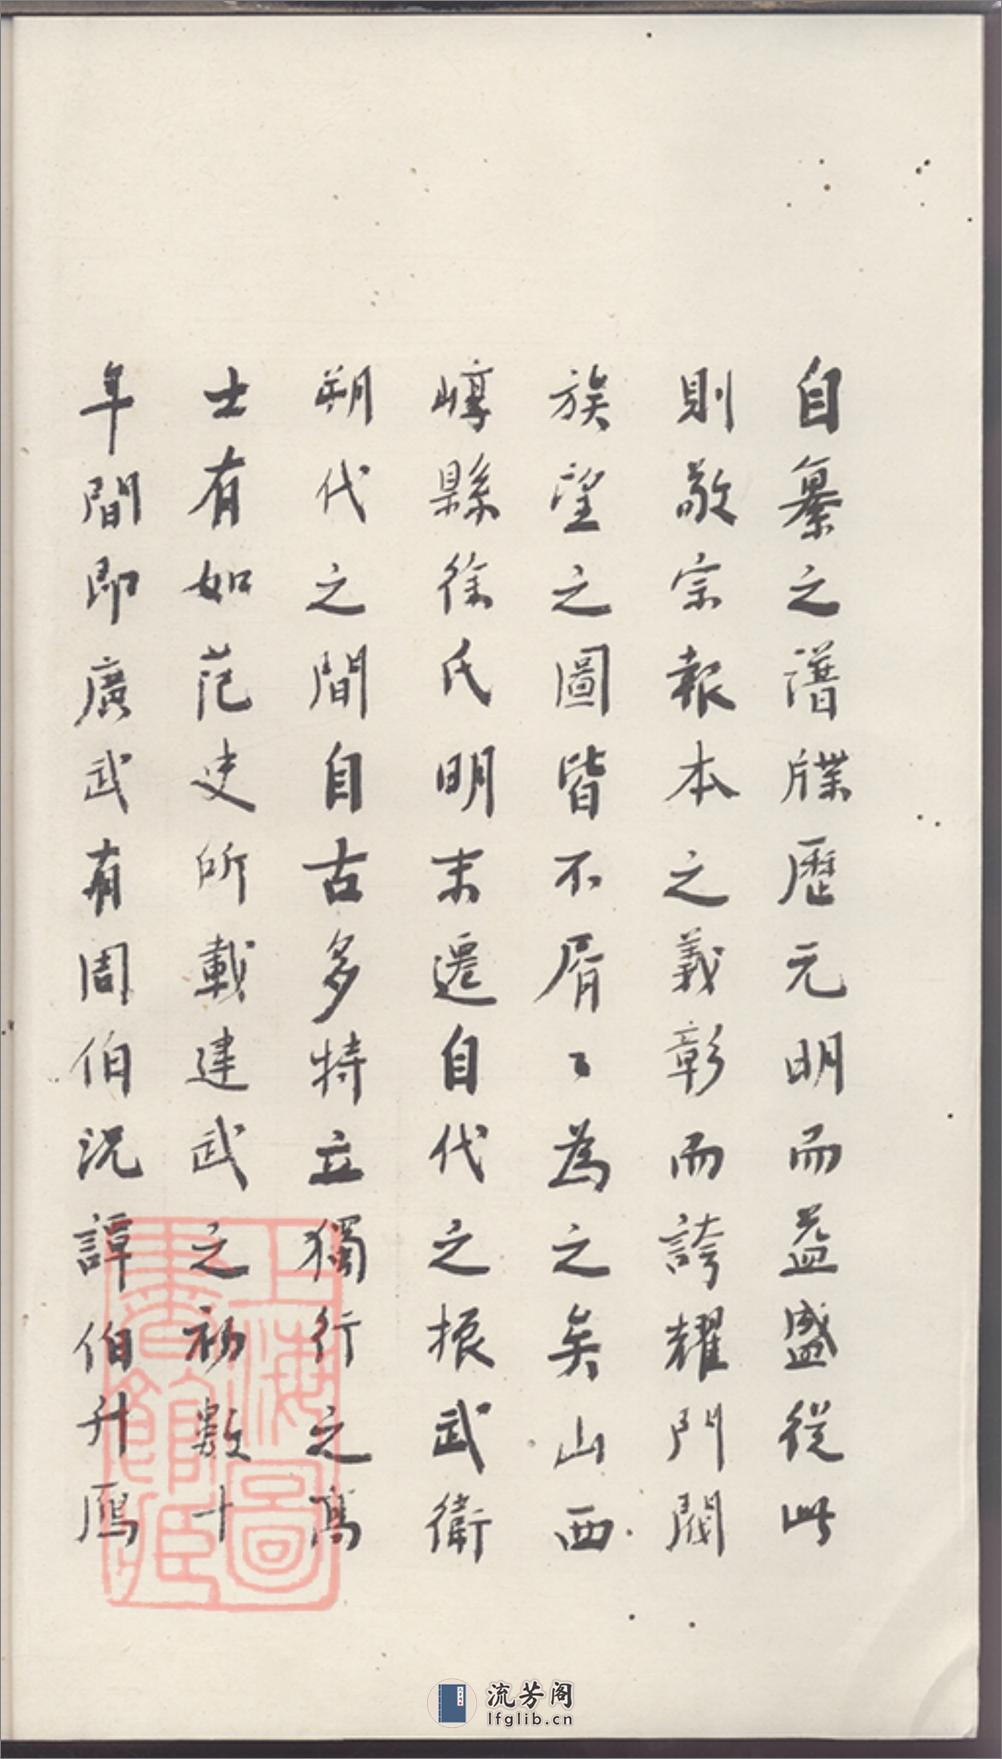 自纂之譜牒歷元明而益盛從此
則敬宗報本之義彰而誇耀門閥
族望之圖皆不屑〻為之矣山西
崞縣徐氏明末遷自代之振武衛
朔代之間自古多特立獨行之高
士有如范史所載建武之初數十
年間即廣武有周伯況譚伯升鴈
上海圖
書館藏
流芳阁
lfglib.cn